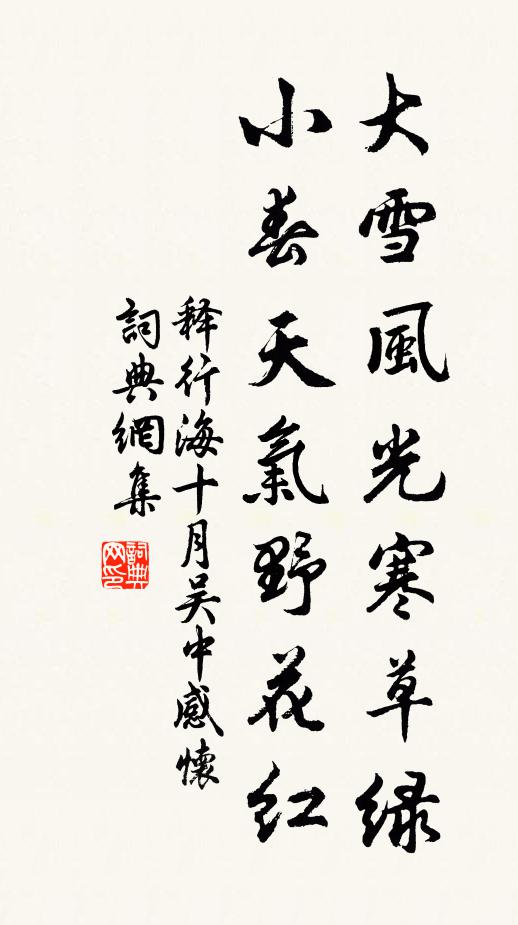 大雪風光寒草緑
小春天氣野花红
释行海十月吴中感懷
詞典網集
詞典
网印